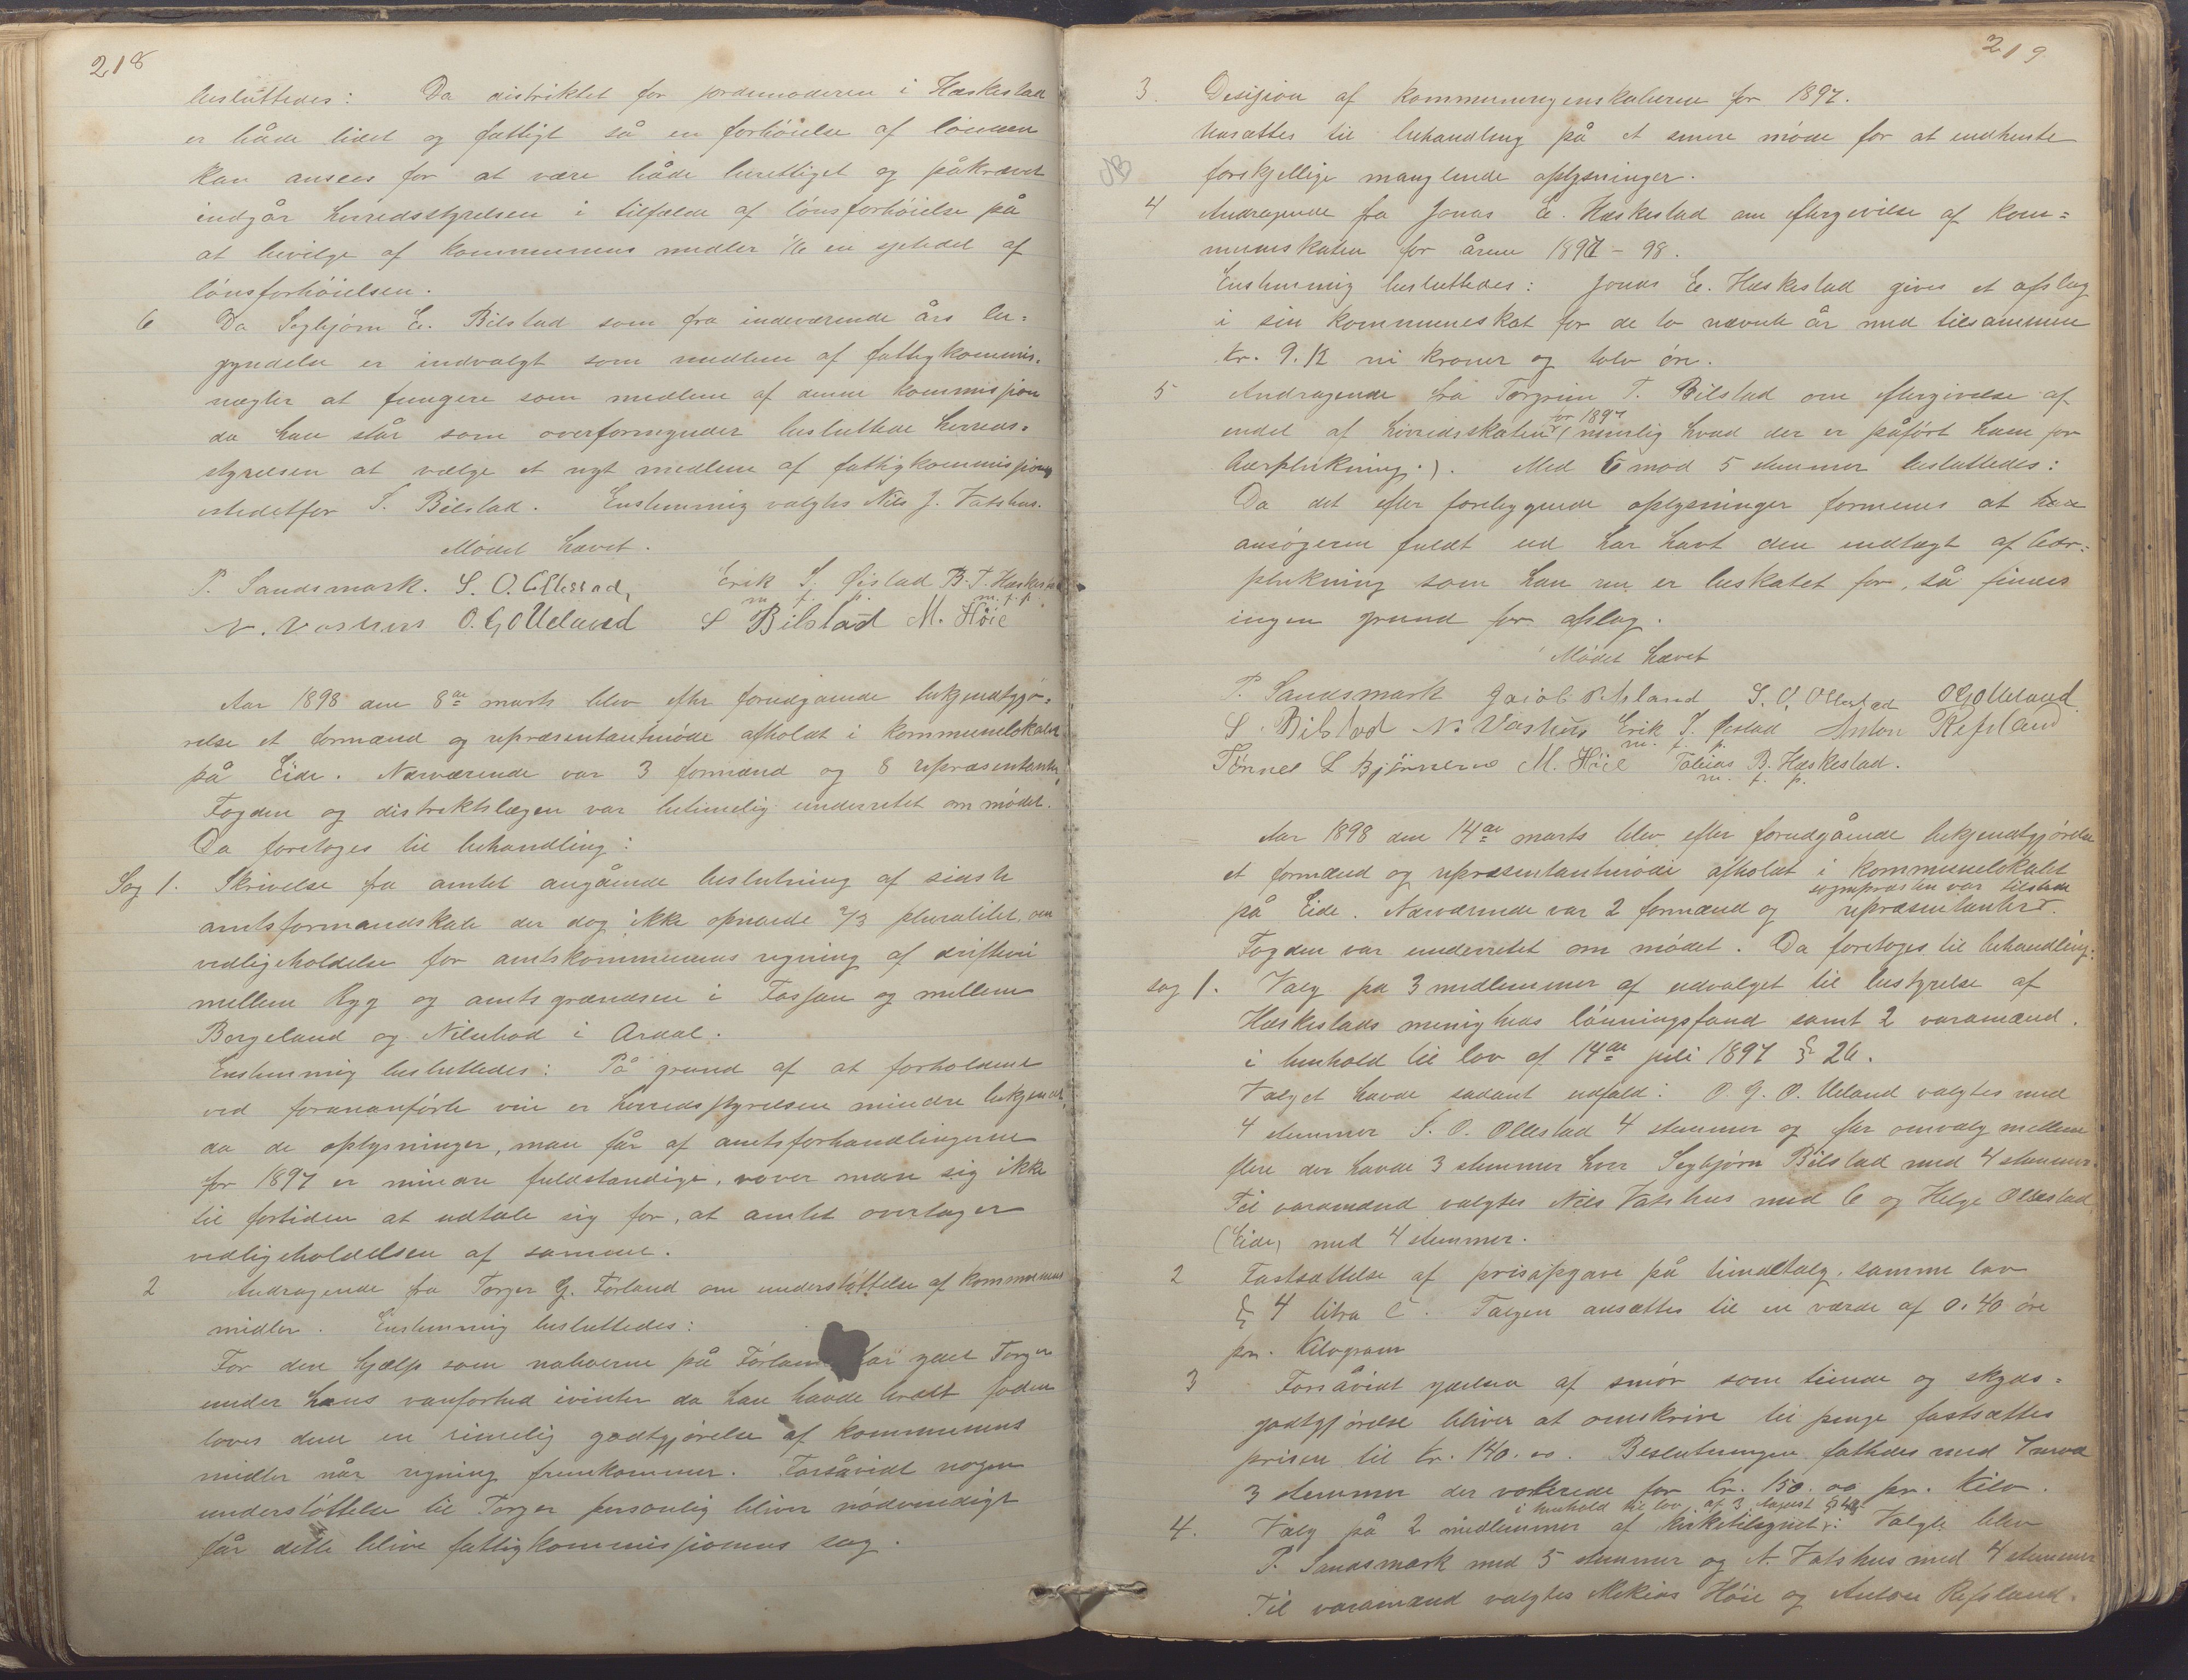 218
besluttedes: Da distriktet for jordemoderen i Hæskestad
er både lidet og fattigt så en forhöielse af lönnen
kan ansees for at være både berettiget og påkrævet
indgår herredsstyrelsen i tilfælde af lönsforhöielse på
at bevilge af kommunens midler 1/6 en sjetedel af
lönsforhöielsen.
6 Da Segbjørn E. Bilstad som fra indeværende års be-
gyndelse er indvalgt som medlem af fattigkommis.
nægter at fungere som medlem af denne kommisjon
da han står som overformynder besluttede herreds-
styrelsen at vælge et nyt medlem af fattigkommisjonen
istedetfor S. Bilstad. Enstemmig valgtes Nils J. Vatshus.
Mödet hævet.
P. Sandsmark. S. O. Ollestad, Erik S. Øistad B. T. Hæskestad
m. f. p. m. f. p.
N. Vashus O. G. O Ueland S Bilstad M. Höie
Aar 1898 den 8de marts blev efter forudgaaende bekjendtgjø-
relse et formænd og repræsentantmöde afholdt i kommunelokalet
på Eide. Nærværende var 3 formænd og 8 repræsentanter
Fogden og distriktslægen var betimelig underrettet om mödet.
Da foretoges til behandling:
Sag 1. Skrivelse fra amtet angående beslutning af sidste
amtsformandskab der dog ikke opnaede 2/3 pluralitet, om
vedligeholdelse for amtskommunens regning af driftevei
mellem Byg og amtsgrændsen i Fossan og mellem
Bergeland og Nilebod i Årdal.
Enstemmig besluttedes: På grund af at forholdene
ved forananförte vei er herredsstyrelsen mindre bekjendt,
da de oplysninger, man får af amtsforhandlingerne
for 1897 er mindre fuldstændige, vover man sig ikke
til fortiden at udtale sig for, at amtet overtager
vedligeholdelsen af samme.
2 Andragende fra Torger G. Förland om understöttelse af kommunens
midler. Enstemmig besluttedes:
For den hjælp som naboerne på Förland har ydet Torger
under hans vanförhed ivinter da han havde brædt foden
loves dem en rimelig godtgjörelse af kommunens
midler når regning fremkommer. Forsåvidt nogen
understöttelse til Torger personlig bliver nödvendigt
får dette blive fattigkommisjonens sag.
219
3. Desisjion af kommuneregnskaberne for 1897.
Udsættes til behandling på et senere möde for at indhente
NB forskjellige manglende oplysninger.
4 Andragende fra Jonas E. Hæskestad om eftergivelse af kom-
muneskatten for årene 1897 - 98.
Enstemmig besluttedes: Jonas E. Hæskestad gives et afslag
i sin kommuneskat for de to nævnte år med tilsammen
kr. 9.12 ni kroner og tolv öre.
5 Andragende fra Torgrim T. Bilstad om eftergivelse af
for 1897
endel af herredsskatten (nemlig hvad der er påfört ham for
bærplukning.). Med 6 mod 5 stemmer besluttedes:
Da det efter foreliggende oplysninger formenes at han
ansögeren fuldt ud har havt den indtægt af bær-
plukning som han nu er beskattet for, så findes
ingen grund for afslag.
Mödet hævet
P. Sandsmark Jacob P. Island S. O. Ollestad OGOUeland
S. Bilstad N. Vashus Erik S. Øistad Anton Refsland
m. f. p.
Tönnes L Björnemo M. Höie Tobias B. Hæskestad.
m. f. p.
Aar 1898 den 14de marts blev efter forudgående bekjendtgjörelse
et formænd og repræsentantmöde afholdt i kommunelokalet
sognepresten var tilstede
på Eide. Nærværende var 2 formænd og repræsentanter.
Fogden var underrettet om mödet. Da foretoges til behandling:
sag 1. Valg på 3 medlemmer af udvalget til bestyrelse af
Hæskestads menigheds lönningsfond samt 2 varamænd.
i henhold til lov af 14de juli 1897 § 26.
Valget havde sadant udfald: O. G. O. Ueland valgtes med
4 stemmer S. O. Ollestad 4 stemmer og efter omvalg mellem
flere der havde 3 stemmer hver Segbjörn Bilstad med 4 stemmer.
Til varamænd valgtes Nils Vatshus med 6 og Helge Ollestad
(Eide) med 4 stemmer.
2 Fastsættelse af prisopgave på tiendetalg. samme lov
§ 4 litra C. Talgen ansættes til en værde af 0.40 öre
pr. Kilogram
3 Forsåvidt ydelsen af smör som tiende og skyds-
godtgjörelse bliver at omskrive til penge fastsættes
prisen til kr. 140.00. Beslutningen fattedes med 7 mod
3 stemmer der voterede for kr. 150.00 pr. Kilo.
i henhold til lov af 3 August §
4. Valg på 2 medlemmer af kirketilsynet: Valgte blev
P. Sandsmark med 5 stemmer og N. Vatshus med 4 stemmer
Til varamænd valgtes Mekias Höie og Anton Refsland.